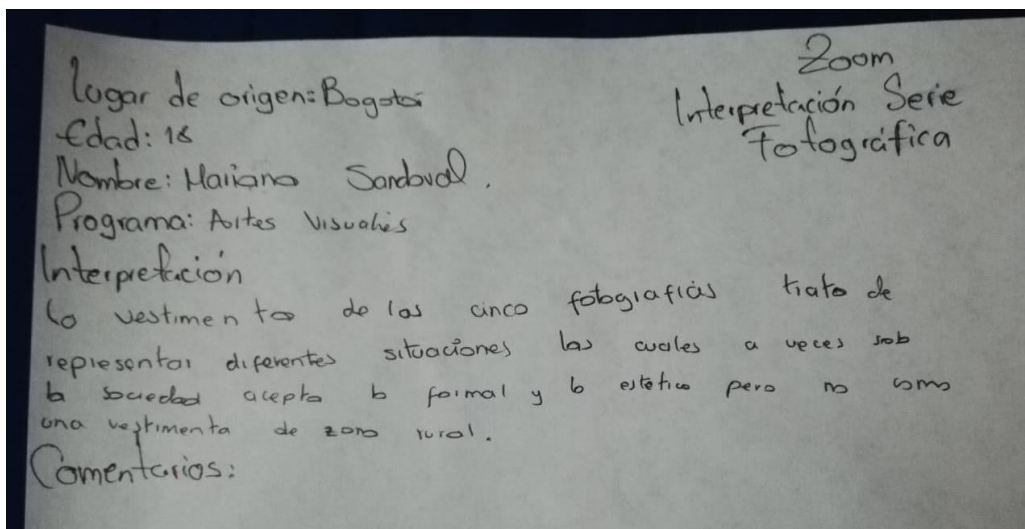 Zoom
Interpretación Serie
Fotográfica
lugar de origen: Bogotá
Edad: 18
Nombre: Mariana Sandoval.
Programa: Artes Visuales
Interpretación
la vestimenta de las cinco fotografías trata de
representar diferentes situaciones las cuales a veces solo
la sociedad acepta lo formal y lo estético pero no como
una vestimenta de zona rural.
Comentarios: